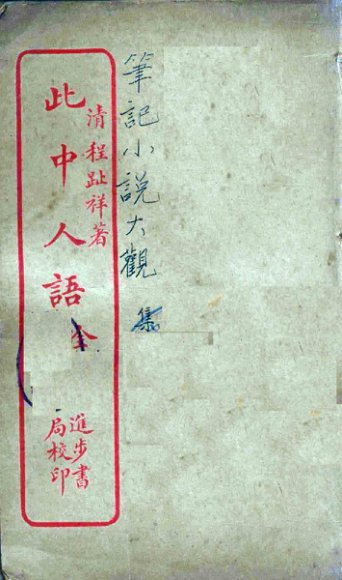 筆記小說大觀 集
清程趾祥著
此中人語全
進步書
局校印